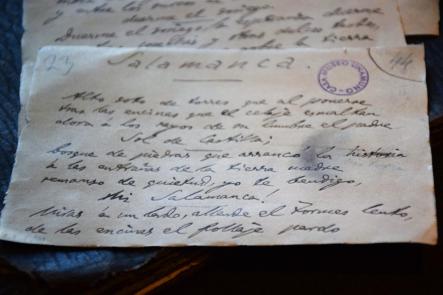 duerme el
Duerme el
la tierra
23
Salamanca.
CASA MUSEO UNAMUNO
44
Alto soto de torres que al ponerse
tras las encinas que el celaje esmaltan
dora a los rayos de su lumbre el padre
Sol de Castilla;
bosque de piedras que arrancó la historia
a las entrañas de la tierra madre
remanso de quietud, yo te bendigo,
Mi Salamanca!
Miras a un lado, allende el Tormes lento,
de las encinas el follaje pardo